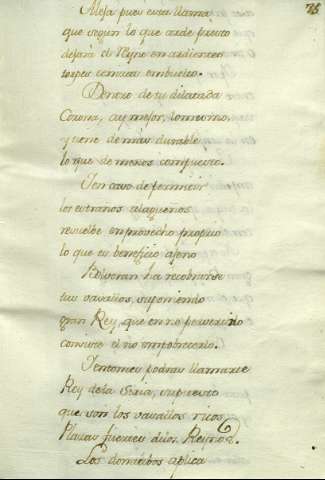 78
Aleja pues essa llama
que segun lo que arde presto
dejará el Reyne en ardientes
torpes cenizas embuelto.
Dentro de tu dilatada
Corona, ay mejor, lo mismo,
y tiene de más durable
lo que de menos compuesto.
Y en caso de permitir
los estraños
resuelbe en provecho proprio
lo que es beneficio ajeno
Bolveran ha recobrarse
tus vasallos, suponiendo
gran Rey, que en no perderlo
consiste el no empobrecerlo.
Y entonces podras llamarte
Rey de la Siria, supuesto
que son los vasallos ricos,
Plazas fuertes de los Reynos.
Los domesticos aplica